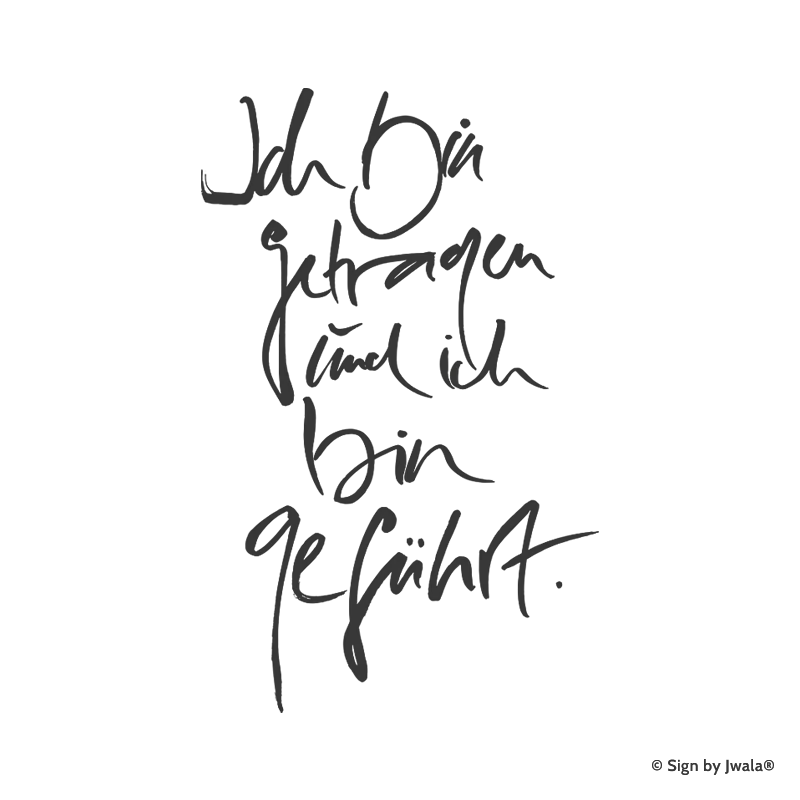 Ich bin
getragen
und ich
bin
geführt.
© Sign by Jwala®